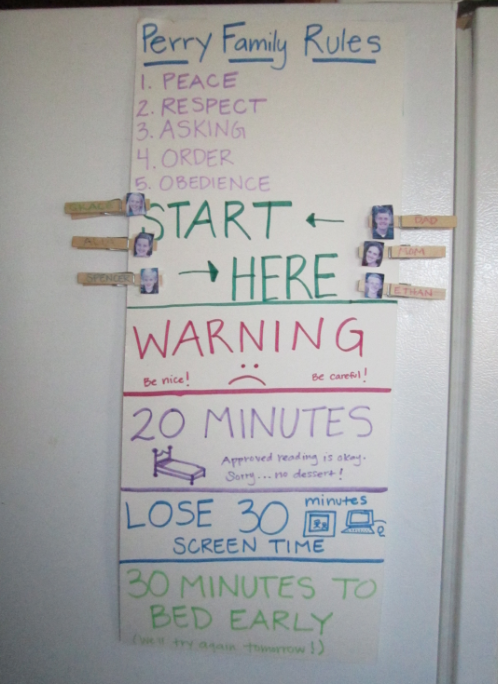 Perry Family Rules
1. PEACE
2. RESPECT
3. ASKING
4. ORDER
5. OBEDIENCE
GRACE
START ←
DAD
ALI
MOM
SPENCER
→ HERE
ETHAN
WARNING
Be nice!
Be careful!
20 MINUTES
Approved reading is okay.
Sorry... no dessert!
LOSE 30 minutes
SCREEN TIME
30 MINUTES TO
BED EARLY
(We'll try again tomorrow!)